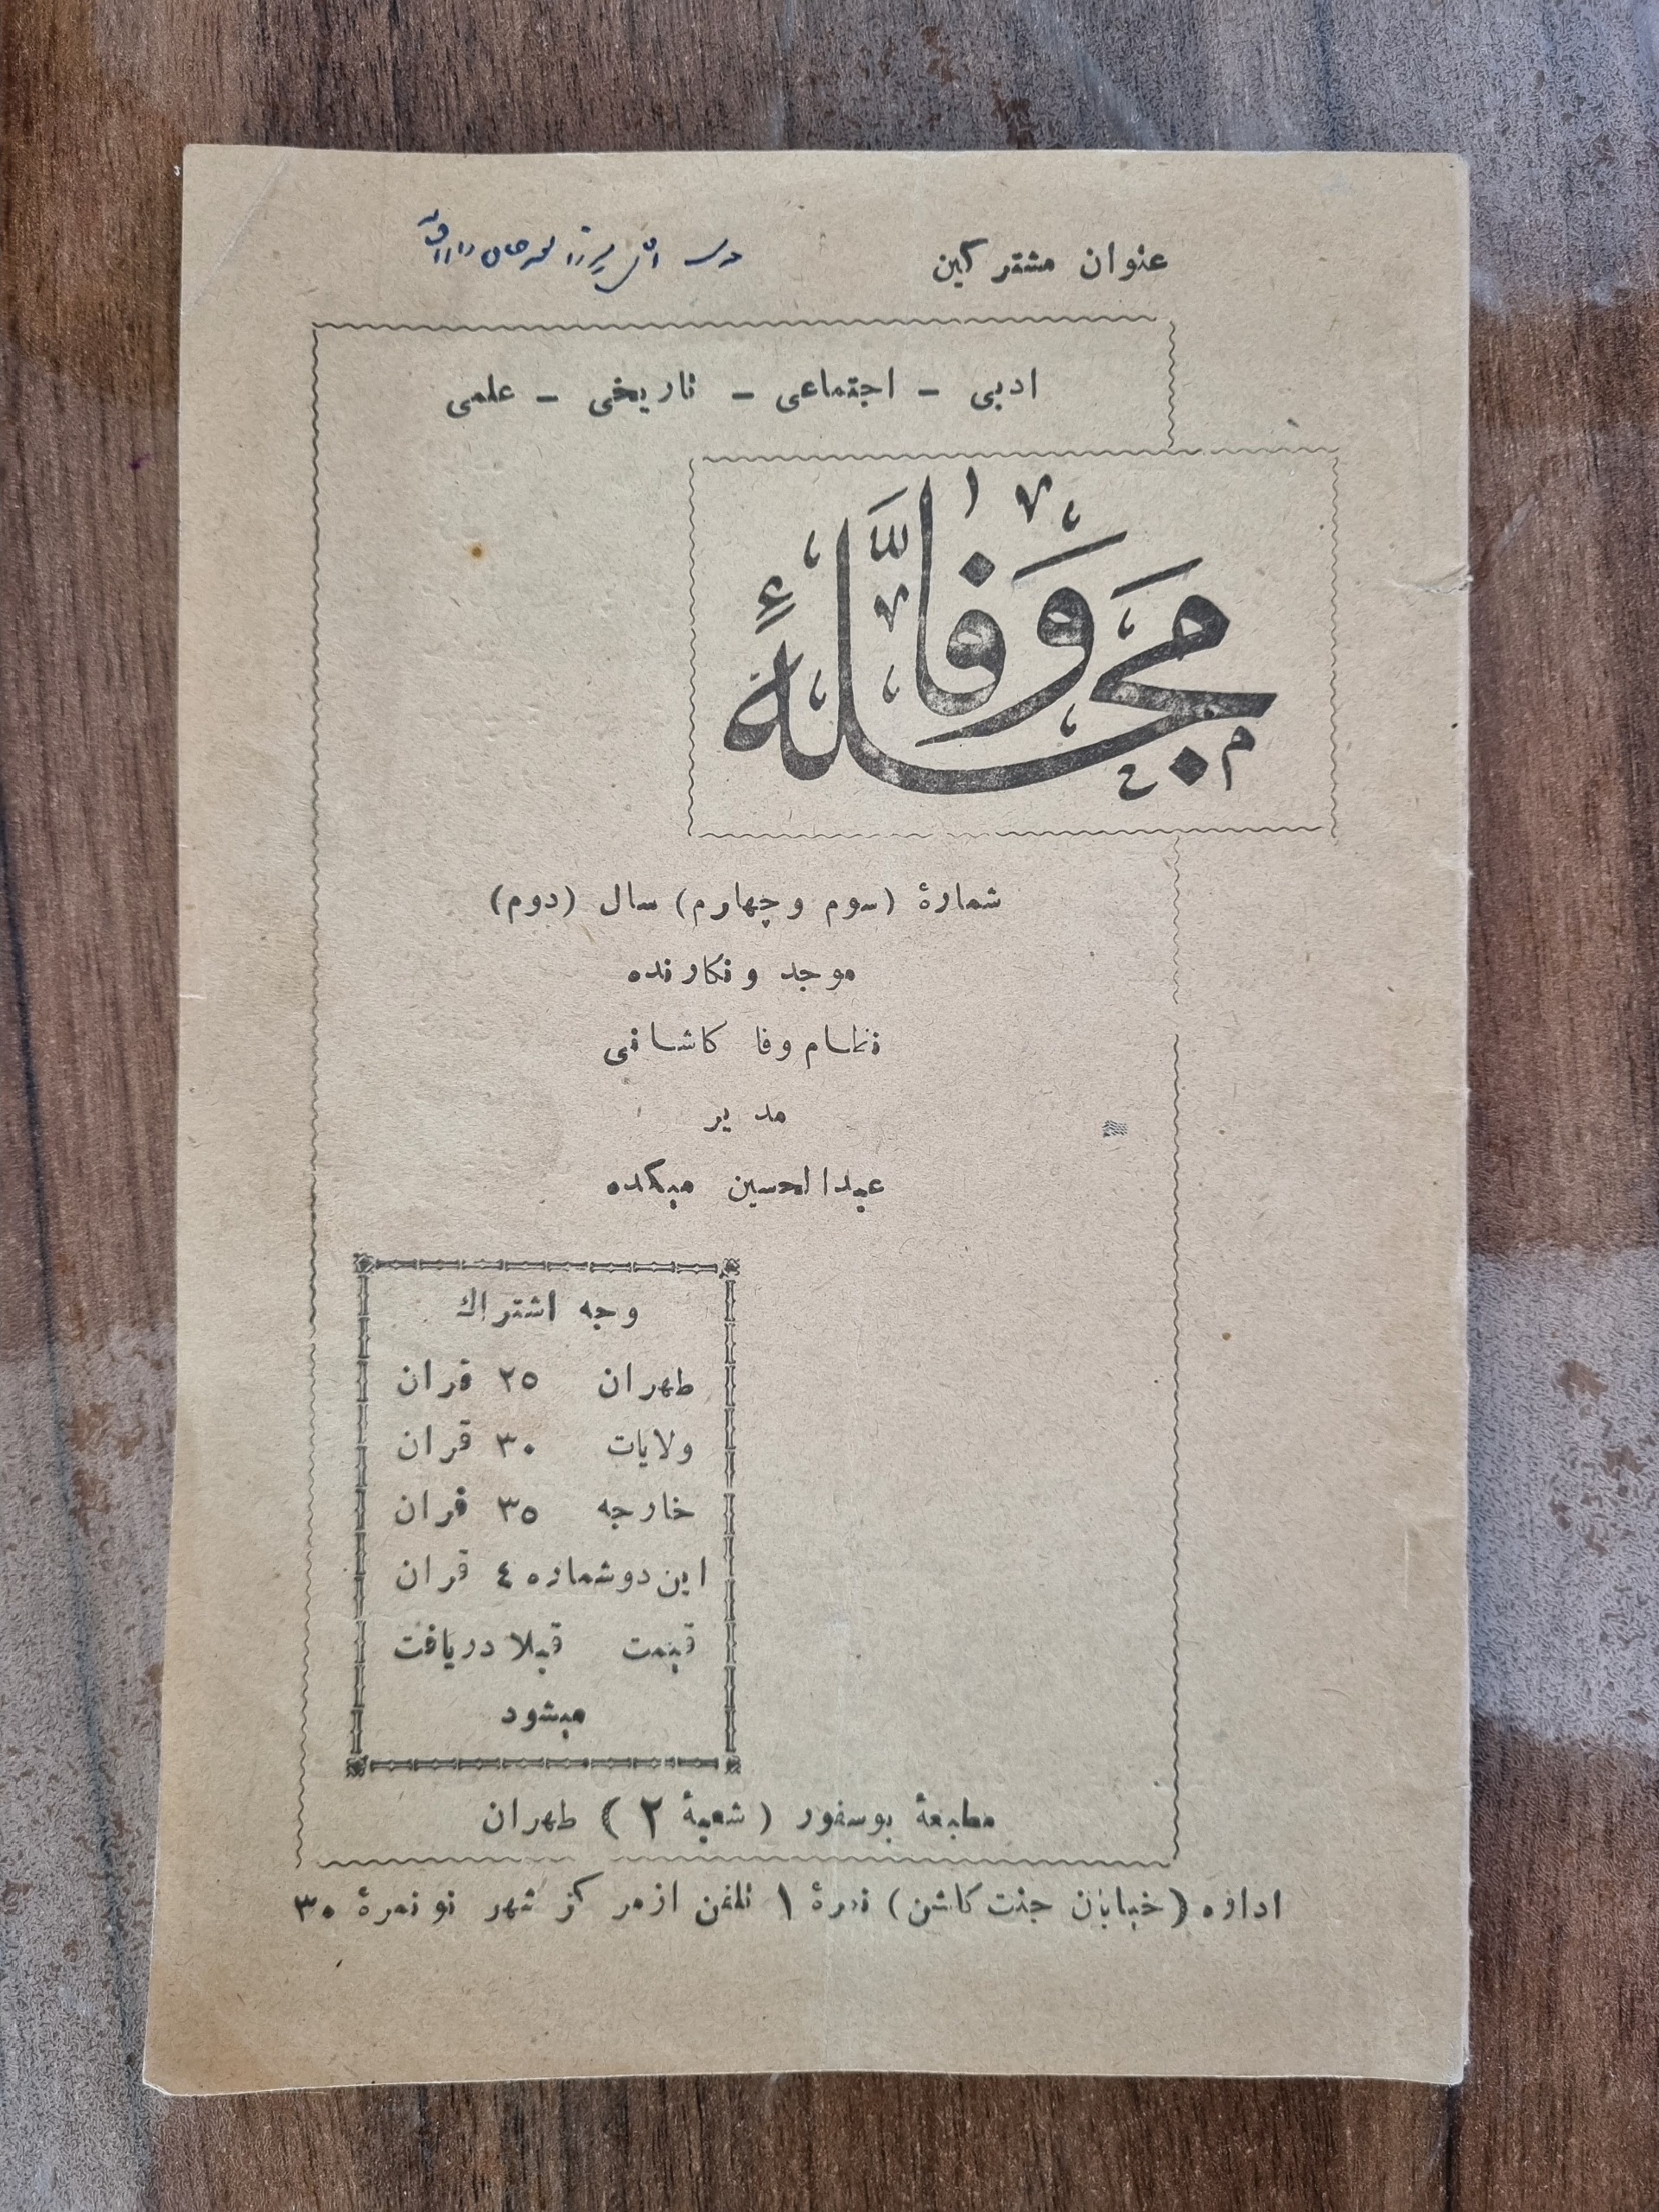 عنوان مشترکین
ادبی - اجتماعی - تاریخی - علمی
مجلهٔ وفا
شمارهٔ (سوم و چهارم) سال (دوم)
موجد و نکارنده
نظام وفا کاشانی
مدیر
عبدالحسین میکده
وجه اشتراك
طهران ۲٥ قران
ولایات ۳۰ قران
خارجه ۳٥ قران
این دوشماره ٤ قران
قیمت قبلا دریافت
میشود
مطبعهٔ بوسفور (شعبهٔ ۲) طهران
اداره (خیابان جنت کلشن) نمرهٔ ۱ تلفن از مرکز شهر نو نمرهٔ ۳۰